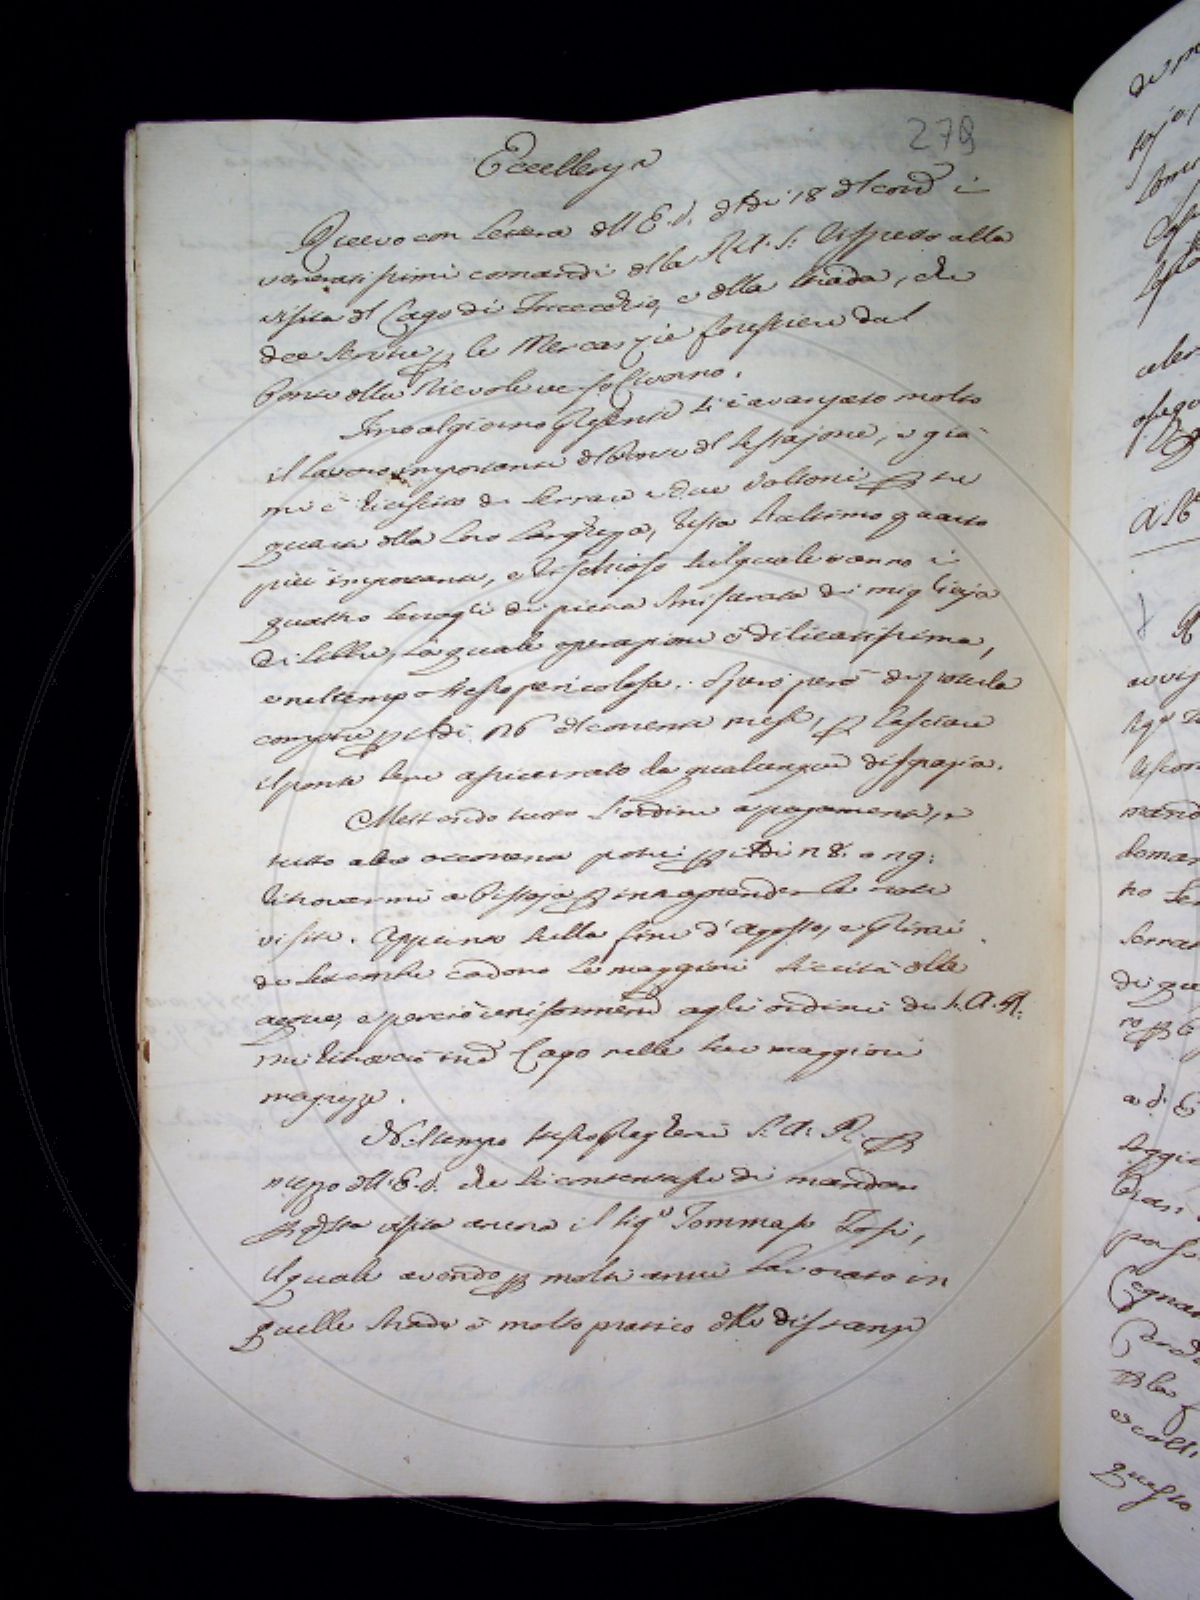 279
Eccellenza
Ricevo con lettera dell'E.V. de dì 18 del cord. i
veneratissimi comandi della R.A.S. rispetto alla
visita del Lago di Fucecchio, e della strada, che
dee servire p le Mercanzie forestiere dal
Ponte alla Nievole verso Livorno.
Fino al giorno presente si è avanzato molto
il lavoro importante del Ponte del Sestajone, e già
mi è riuscito di serrare i due Voltoni p tre
quarti della loro larghezza, resta l'ultimo quarto
più importante, e rischioso sul quale vanno i
quattro serragli di pietra smisurata di migliaja
di libbre, la quale operazione è dilicatissima,
e nel tempo stesso pericolosa. Spero però di poterla
compire p il dì 26 del corrente mese, p lasciare
il ponte bene assicurato da qualunque disgrazia.
Mettendo tutto l'ordine a pagamenti, e
tutto altro occorrente potrei p il dì 28. o 29:
ritrovarmi a Pistoja p intraprender la nota
visita. Appunto sulla fine d'Agosto, e primi
di Settembre cadono le maggiori siccità delle
acque, e perciò uniformend. agli ordini di S.A.R.
mi troverei in d. Lago nelle sue maggiori
magrezze.
Nel tempo stesso pregherei S.A.R. p
mezzo dell'E.V. che si contentasse di mandar
p detta visita ancora il Sig.e Tommaso Tosi,
il quale avendo p molti anni lavorato in
quelle strade è molto pratico delle distanze